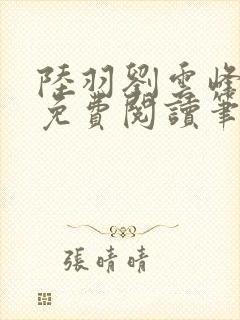 陸羽劉雲峰
免費閱讀筆
張晴晴